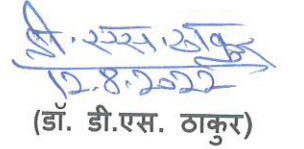 डी.एस.ठाकुर
12.8.2022
(डॉ. डी.एस. ठाकुर)